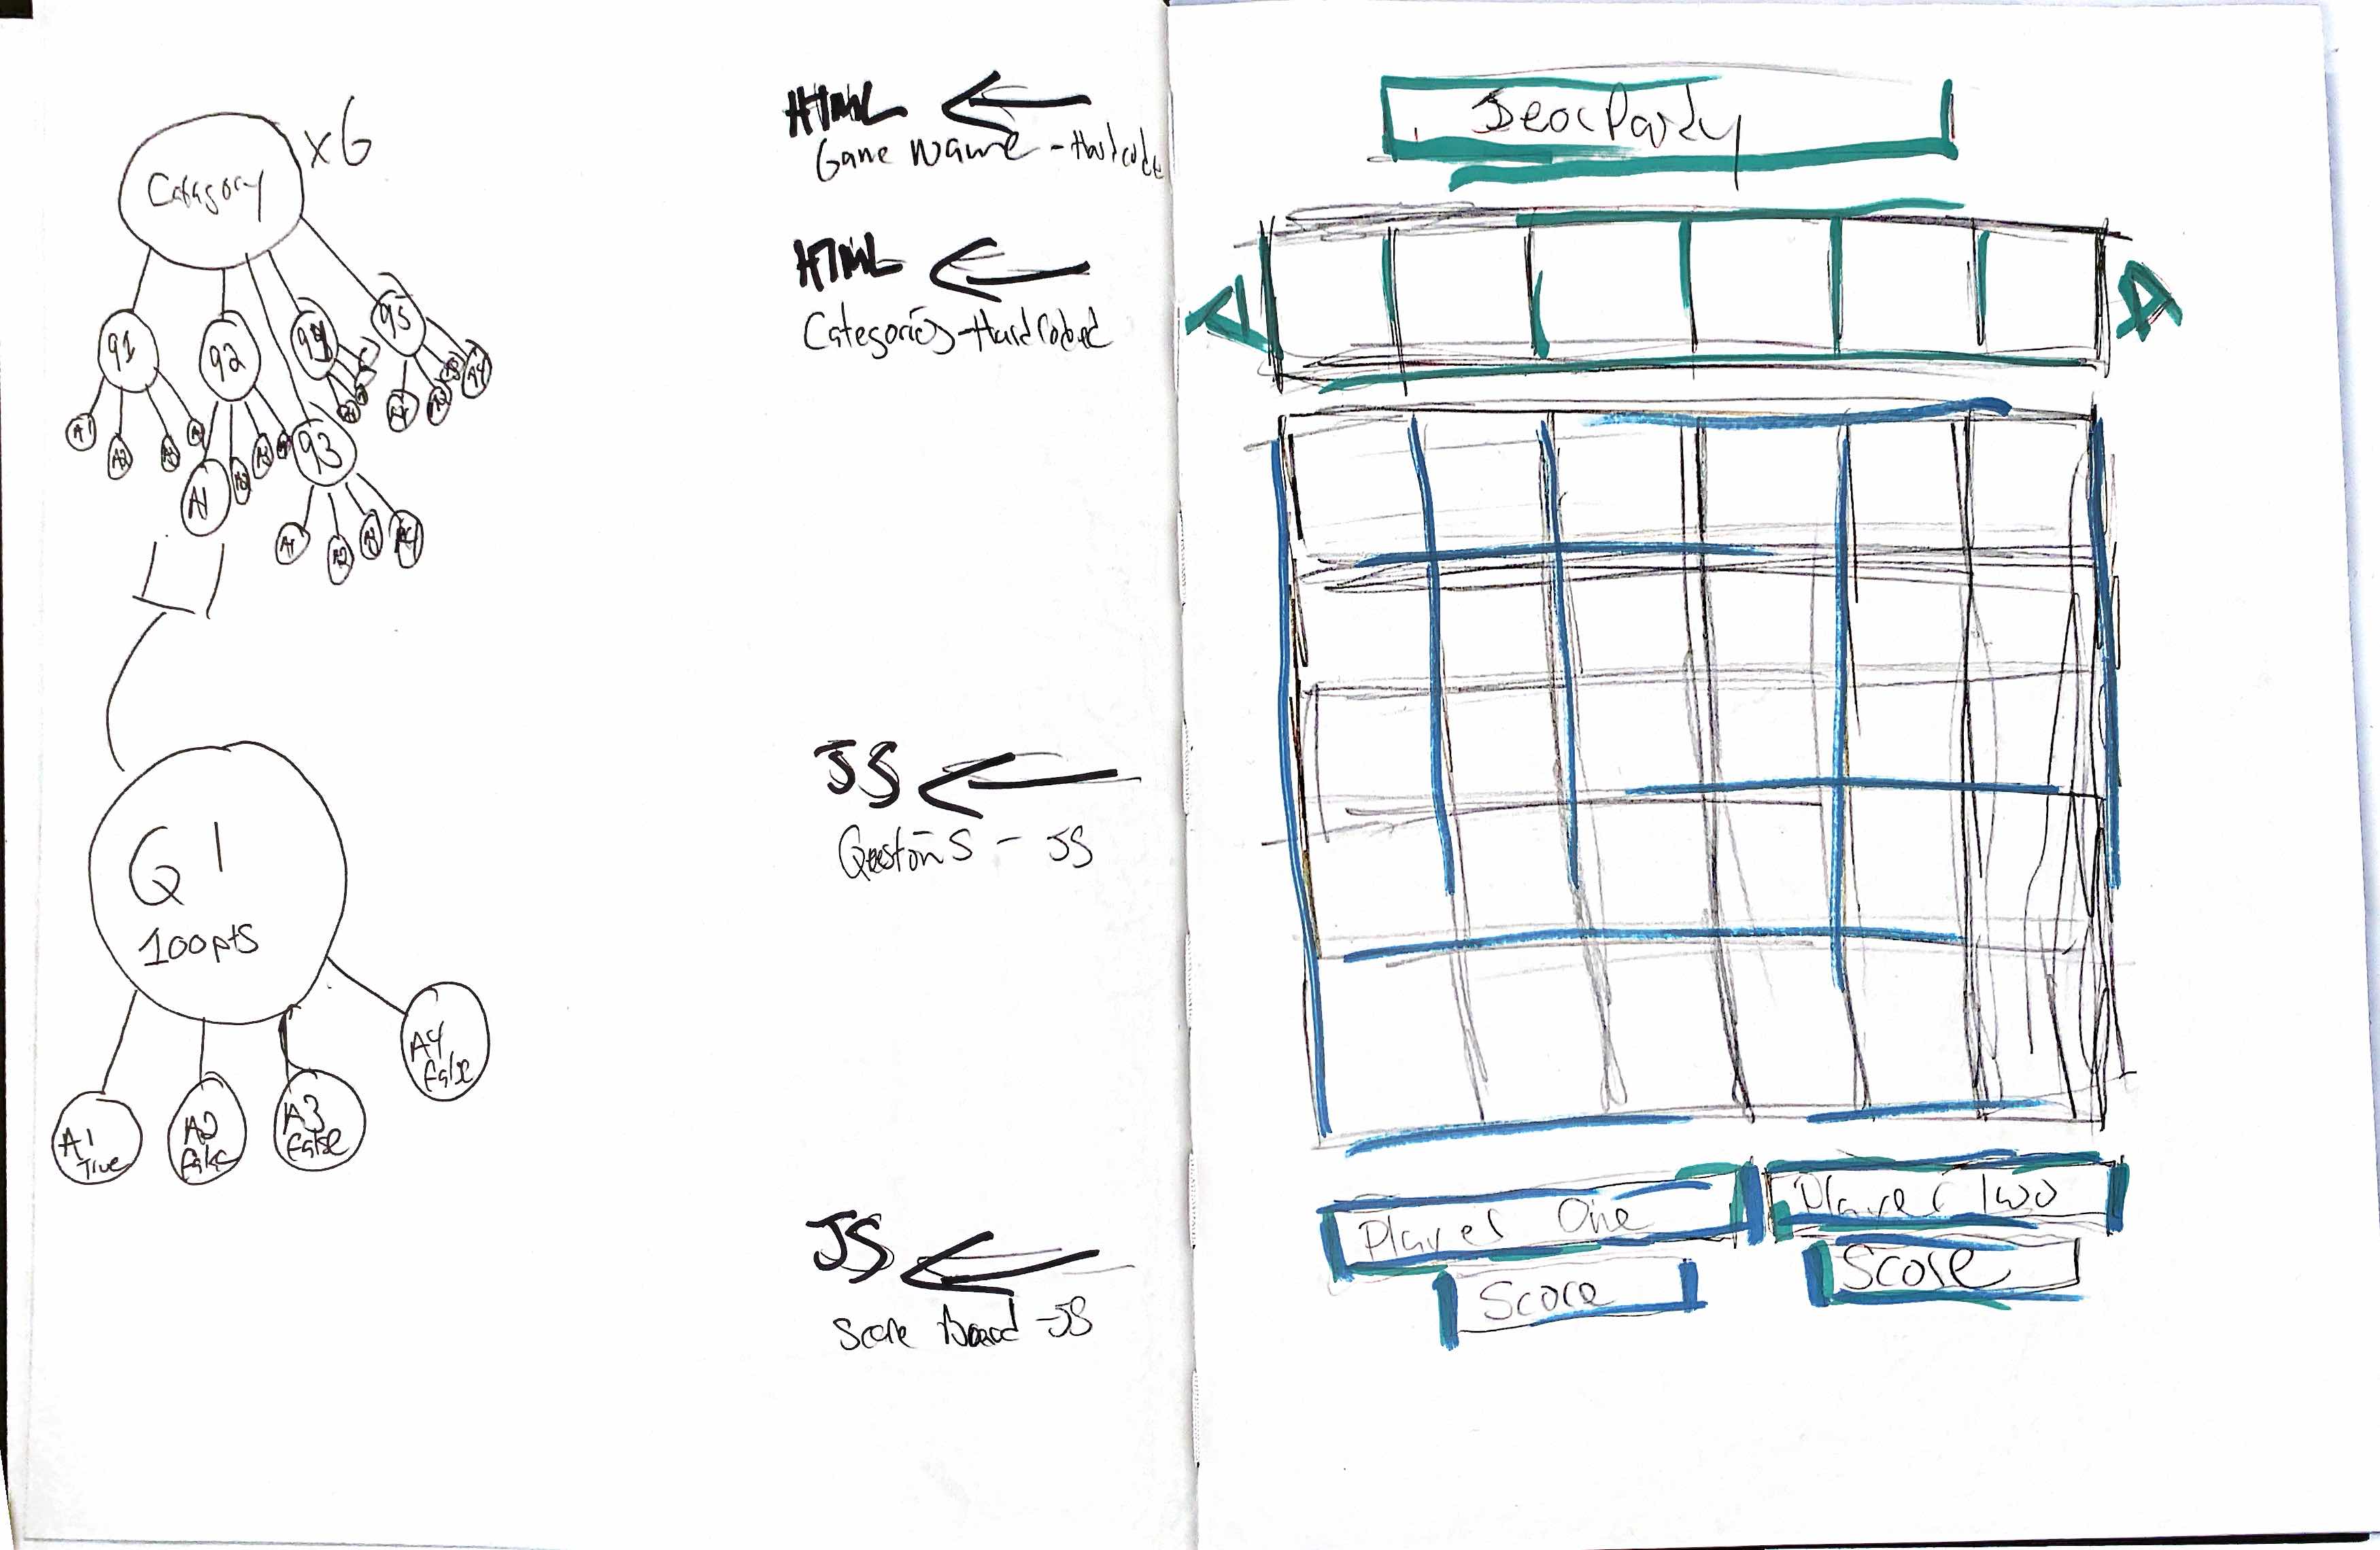 Category
x6
q1
q2
q4
q5
q3
A1
A2
A3
A1
A2
A3
A1
A2
A3
A4
Q1
100pts
A1
True
A2
False
A3
False
A4
False
HTML
Game Name - Hardcode
HTML
Categories - Hardcoded
JS
Questions - JS
JS
Score Board - JS
JeocPardy
Player One
Score
Player Two
Score